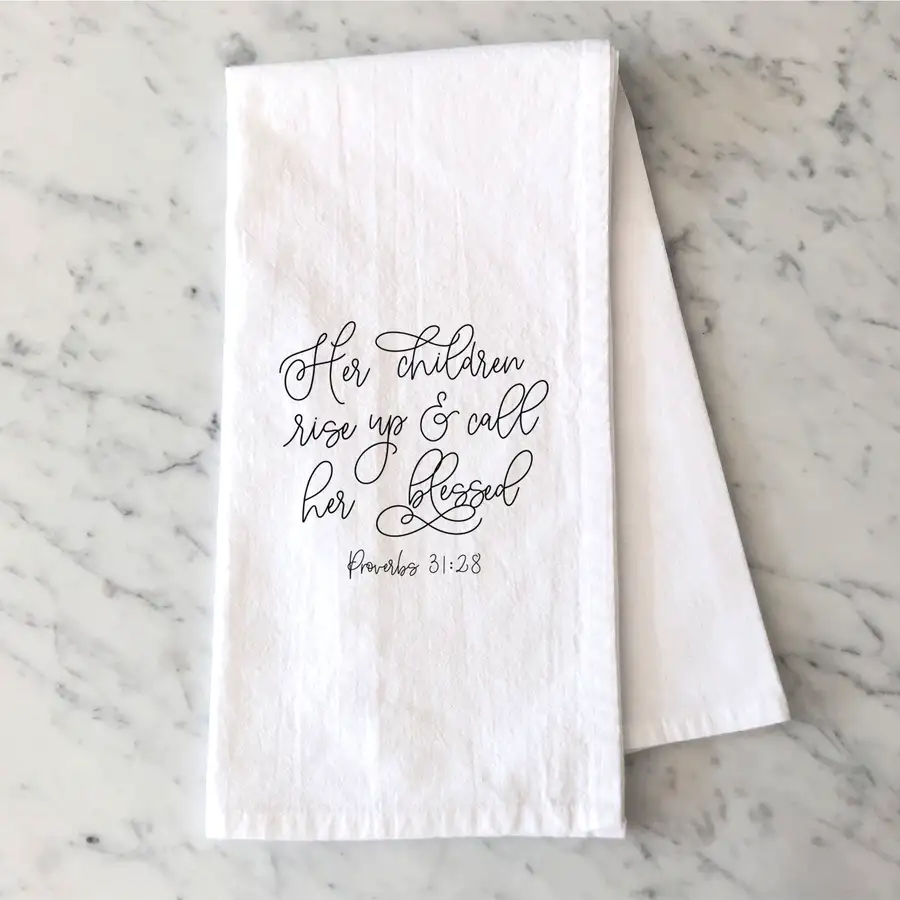 Her children
rise up & call
her blessed
Proverbs 31:28